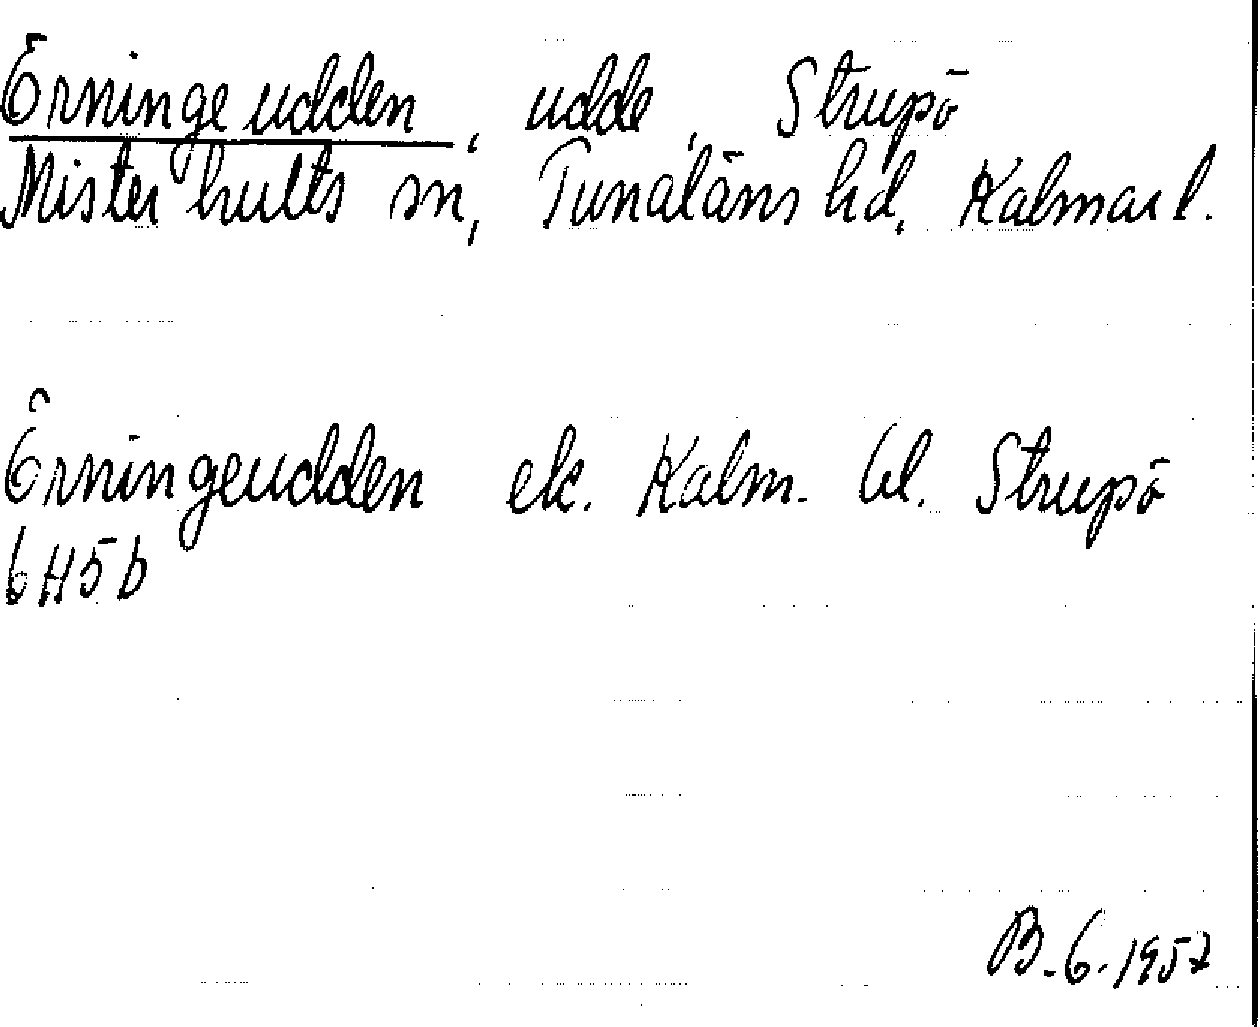 Örningeudden, udde, Strupö
Misterhults sn, Tunaläns hd, Kalmar l.
Örningeudden ek. Kalm. bl. Strupö
6H5b
B.G. 1957